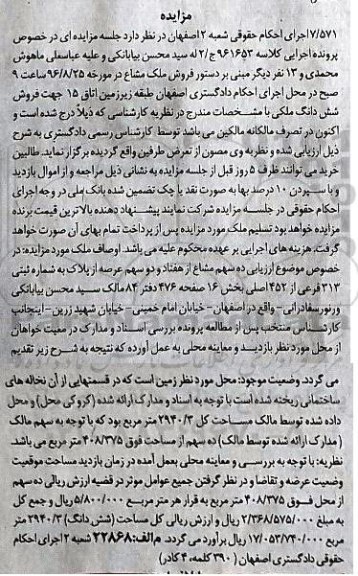 مزایده
۷/۵۷۱ اجرای احکام حقوقی شعبه ۲ اصفهان در نظر دارد جلسه مزایده ای در خصوص
پرونده اجرایی کلاسه ۹۶۱۶۵۳ ج/۲ له سید محسن بیابانکی و علیه عباسعلی ماهوش
محمدی و ۱۳ نفر دیگر مبنی بر دستور فروش ملک مشاع در مورخه ۹۶/۸/۲۵ ساعت ۹
صبح در محل اجرای احکام دادگستری اصفهان طبقه زیرزمین اتاق ۱۵ جهت فروش
شش دانگ ملکی با مشخصات مندرج در نظریه کارشناسی که ذیلاً درج شده است و
اکنون در تصرف مالکانه مالکین می باشد توسط کارشناس رسمی دادگستری به شرح
ذیل ارزیابی شده و نظریه وی مصون از تعرض طرفین واقع گردیده برگزار نماید. طالبین
خرید می توانند ظرف ۵ روز قبل از جلسه مزایده به نشانی ذیل مراجعه و از اموال بازدید
و با سپردن ۱۰ درصد بها به صورت نقد یا چک تضمین شده بانک ملی در وجه اجرای
احکام حقوقی در جلسه مزایده شرکت نمایند پیشنهاد دهنده بالاترین قیمت برنده
مزایده خواهد بود تسلیم ملک مورد مزایده پس از پرداخت تمام بهای آن صورت خواهد
گرفت. هزینه های اجرایی بر عهده محکوم علیه می باشد. اوصاف ملک مورد مزایده: در
خصوص موضوع ارزیابی ده سهم مشاع از هفتاد و دو سهم عرصه از پلاک به شماره ثبتی
۳۱۳ فرعی از ۴۵۲ اصلی بخش ۱۶ صفحه ۴۷۶ دفتر ۸۴ مالک سید محسن بیابانکی
ورنوسفادرانی - واقع در اصفهان - خیابان امام خمینی - خیابان شهید زرین - اینجانب
کارشناس منتخب پس از مطالعه پرونده بررسی اسناد و مدارک در معیت خواهان
از محل مورد نظر بازدید و معاینه محلی به عمل آورده که نتیجه به شرح زیر تقدیم
می گردد. وضعیت موجود: محل مورد نظر زمین است که در قسمتهایی از آن نخاله های
ساختمانی ریخته شده است با توجه به اسناد و مدارک ارائه شده (کروکی محل) و محل
داده شده توسط مالک مساحت کل ۲۹۴۰/۳ متر مربع بود که با توجه به سهم مالک
(مدارک ارائه شده توسط مالک) ده سهم از مساحت فوق ۴۰۸/۳۷۵ متر مربع می باشد.
نظریه: با توجه به بررسی و معاینه محلی بعمل آمده در زمان بازدید مساحت موقعیت
وضعیت عرضه و تقاضا و در نظر گرفتن جمیع عوامل موثر در قضیه ارزش ریالی ده سهم
از محل فوق ۴۰۸/۳۷۵ متر مربع به قرار هر متر مربع ۵/۸۰۰/۰۰۰ ریال و جمع کل
به مبلغ ۲/۳۶۸/۵۷۵/۰۰۰ ریال و ارزش ریالی کل مساحت (شش دانگ) ۲۹۴۰/۳ متر
مربع ۱۷/۰۵۳/۷۴۰/۰۰۰ ریال برآورد می گردد. م الف: ۲۲۸۶۸ شعبه ۲ اجرای احکام
حقوقی دادگستری اصفهان (۳۹۰ کلمه، ۴ کادر)